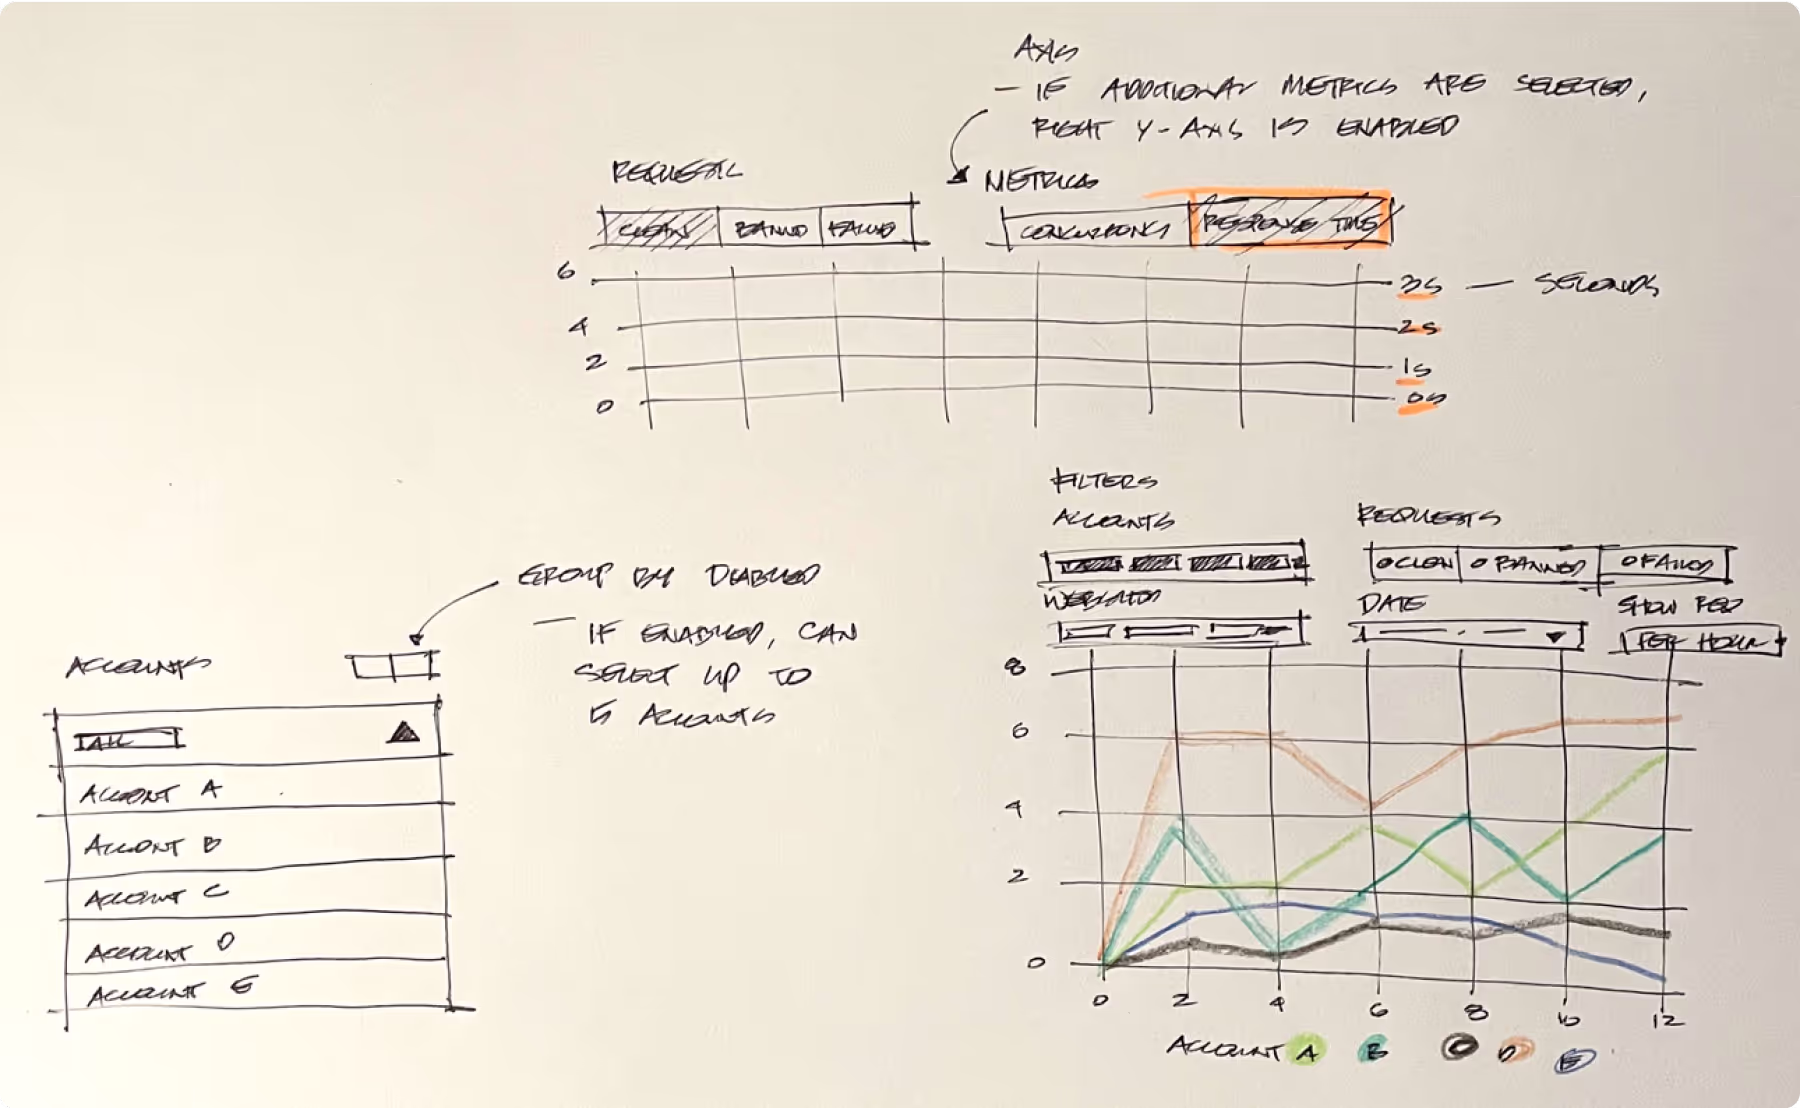 AXIS
- IF ADDITIONAL METRICS ARE SELECTED,
RIGHT Y-AXIS IS ENABLED
REQUESTS
METRICS
CLEAN BANNED FAILED
CONCURRENCY RESPONSE TIME
6
4
2
0
3S — SECONDS
2S
1S
0S
GROUP BY DISABLED
- IF ENABLED, CAN
SELECT UP TO
5 ACCOUNTS
ACCOUNTS
ALL
ACCOUNT A
ACCOUNT B
ACCOUNT C
ACCOUNT D
ACCOUNT E
FILTERS
ACCOUNTS
REQUESTS
CLEAN BANNED FAILED
WEBSITES
DATE
SHOW PER
PER HOUR
8
6
4
2
0
0 2 4 6 8 10 12
ACCOUNT A B C D E